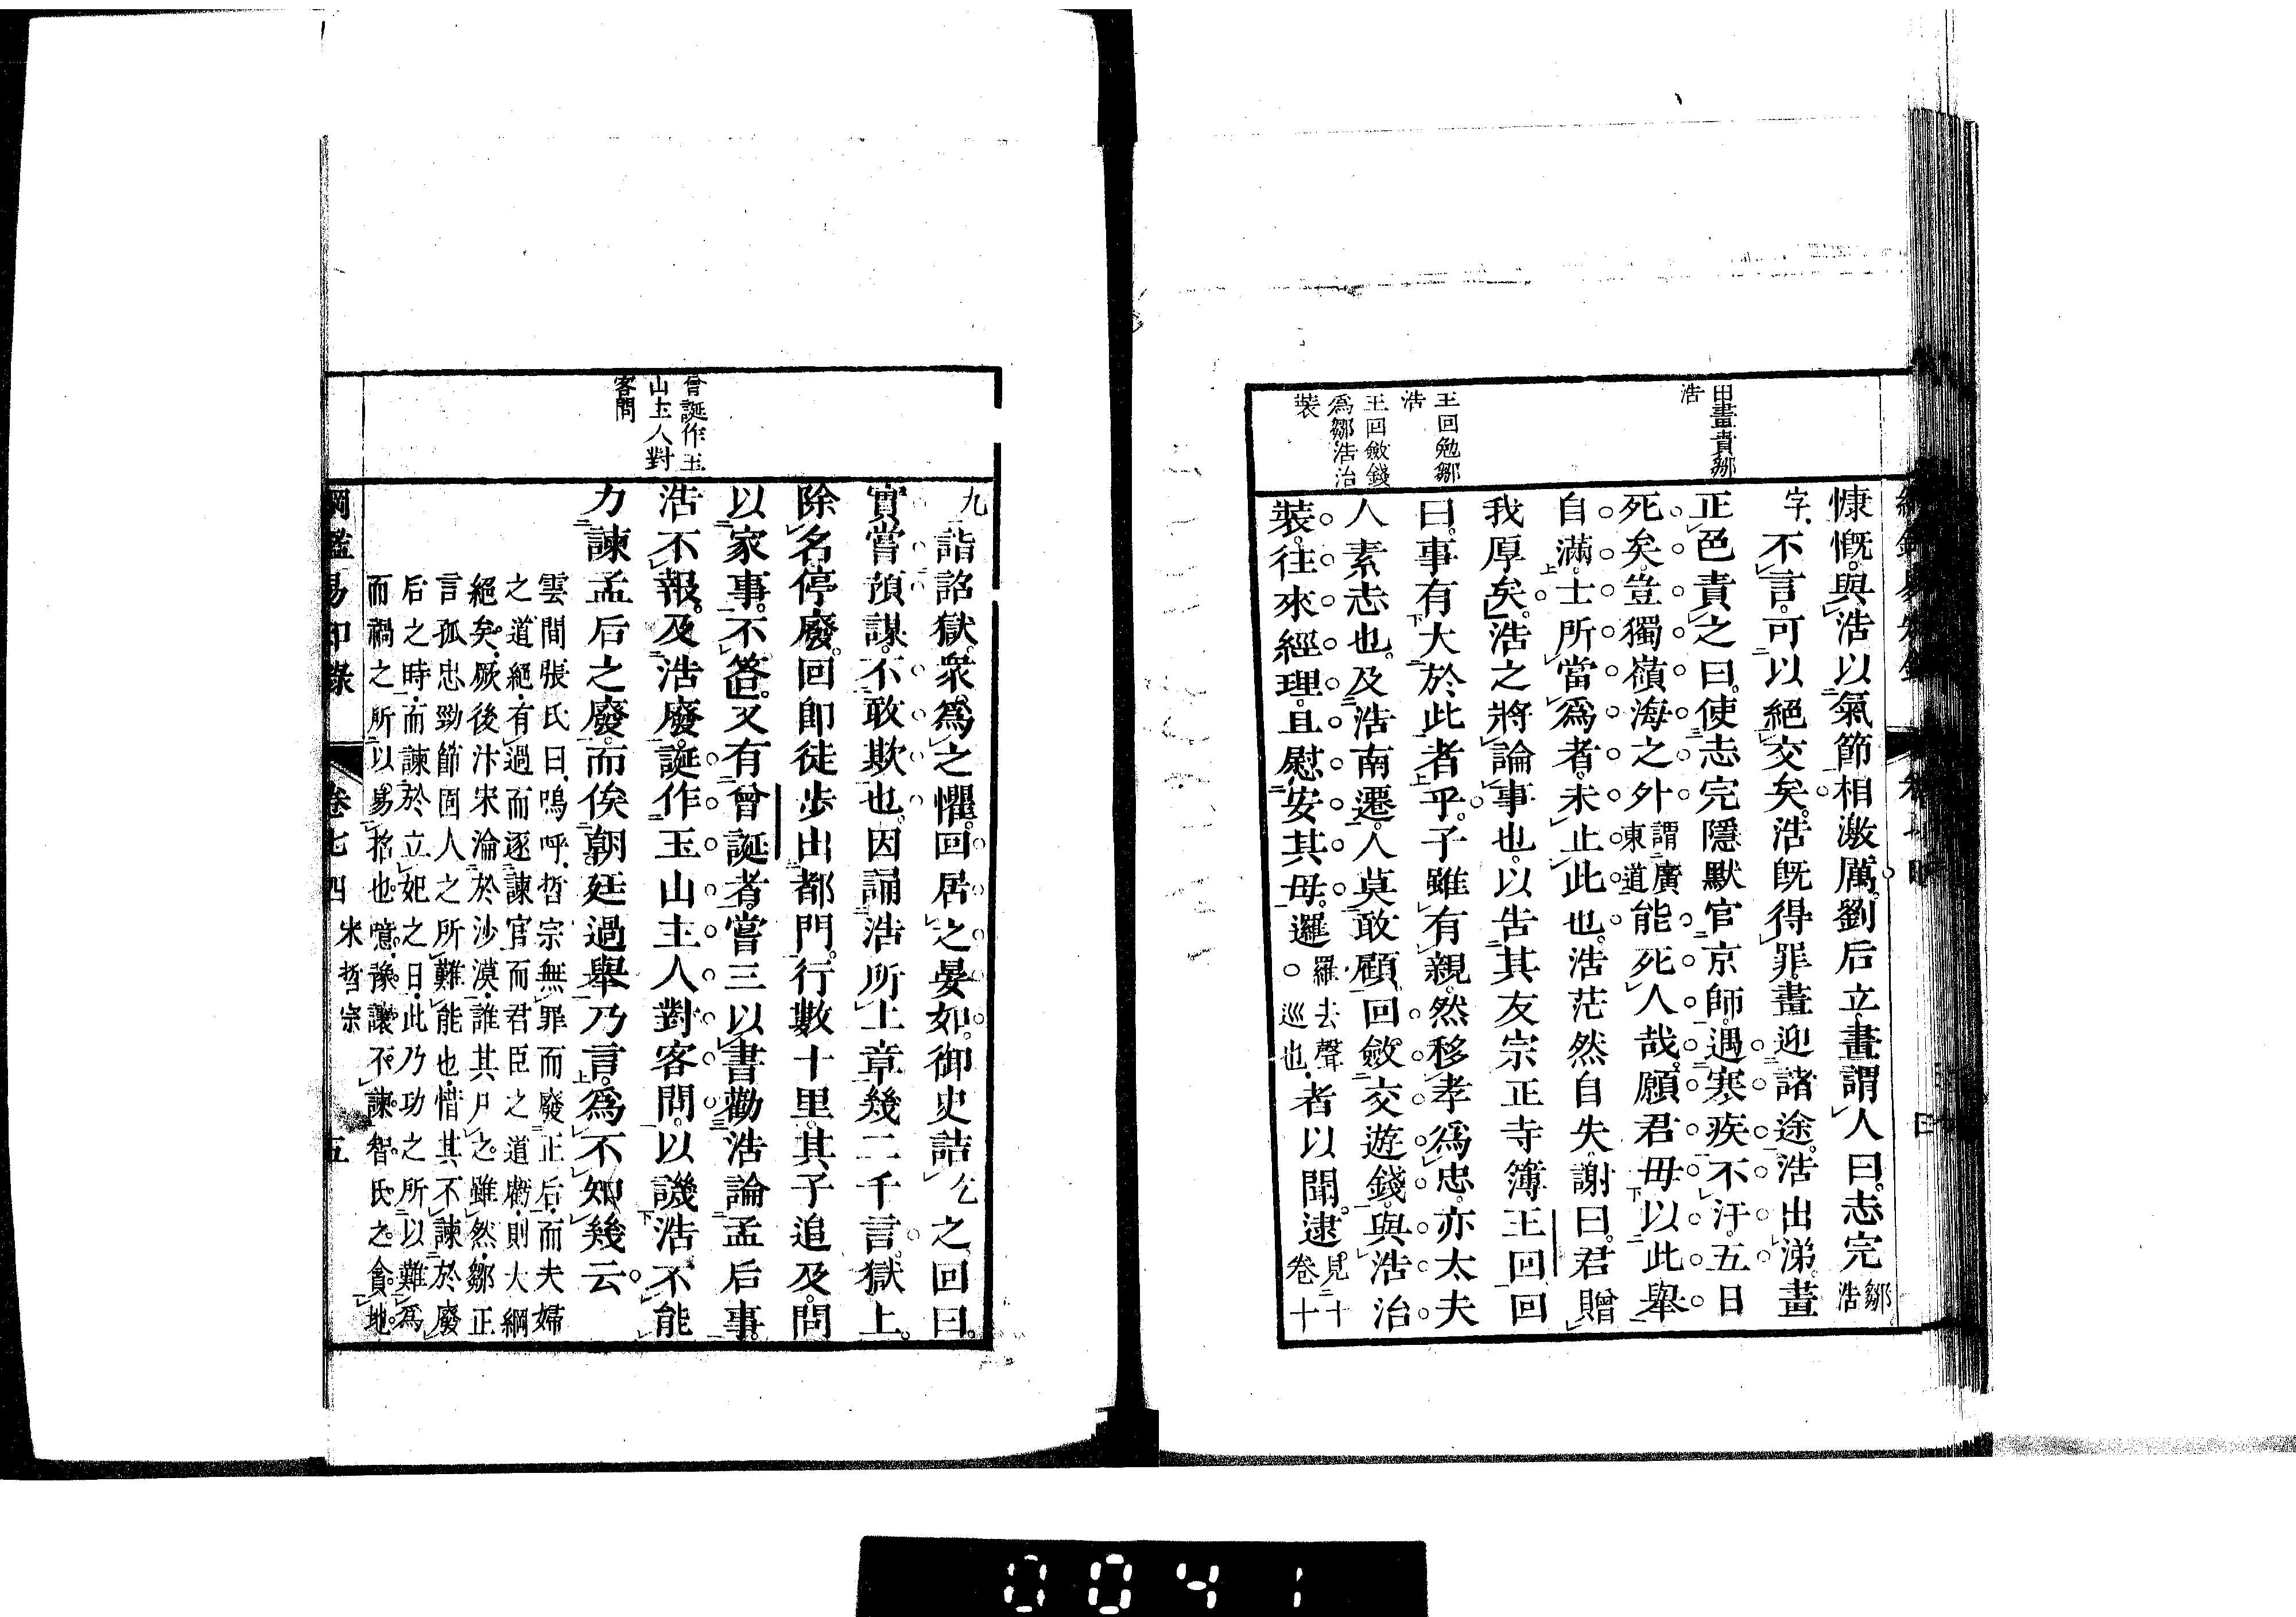 田畫責鄒
浩
王回勉鄒
浩
王回斂錢
爲鄒浩治
裝
慷慨。與浩以氣節相激厲。劉后立。畫謂人曰。志完鄒浩
字。不言。可以絕交矣。浩旣得罪。畫迎諸途。浩出涕。畫
正色責之曰。使志完隱默官京師。遇寒疾不汗。五日
死矣。豈獨嶺海之外謂廣東道能死人哉。願君毋以此舉
自滿。士所當爲者。未止此也。浩茫然自失。謝曰。君贈
我厚矣。浩之將論事也。以告其友宗正寺簿王回。回
曰。事有大於此者乎。子雖有親。然移孝爲忠。亦太夫
人素志也。及浩南遷。人莫敢顧。回斂交遊錢。與浩治
裝。往來經理。且慰安其母。邏羅去聲。巡也。者以聞。逮見十卷十
曾誕作玉
山主人對
客問
九詣詔獄。衆爲之懼。回居之晏如。御史詰乞之。回曰。
實嘗預謀。不敢欺也。因誦浩所上章幾二千言。獄上。
除名停廢。回卽徒步出都門。行數十里。其子追及。問
以家事。不答。又有曾誕者。嘗三以書勸浩論孟后事。
浩不報。及浩廢。誕作玉山主人對客問。以譏浩不能
力諫孟后之廢。而俟朝廷過舉乃言。爲不知幾云。
雲間張氏曰。嗚呼。哲宗無罪而廢正后。而夫婦
之道絕。有過而逐諫官。而君臣之道虧。則大綱
絕矣。厥後汴宋淪於沙漠。誰其尸之。雖然。鄒正
言孤忠勁節。固人之所難能也。惜其不諫於廢
后之時。而諫於立妃之日。此乃功之所以難爲
而禍之所以易搭也。噫。豫讓不諫智氏之貪地。
綱鑑易知錄 卷七四 宋哲宗 五